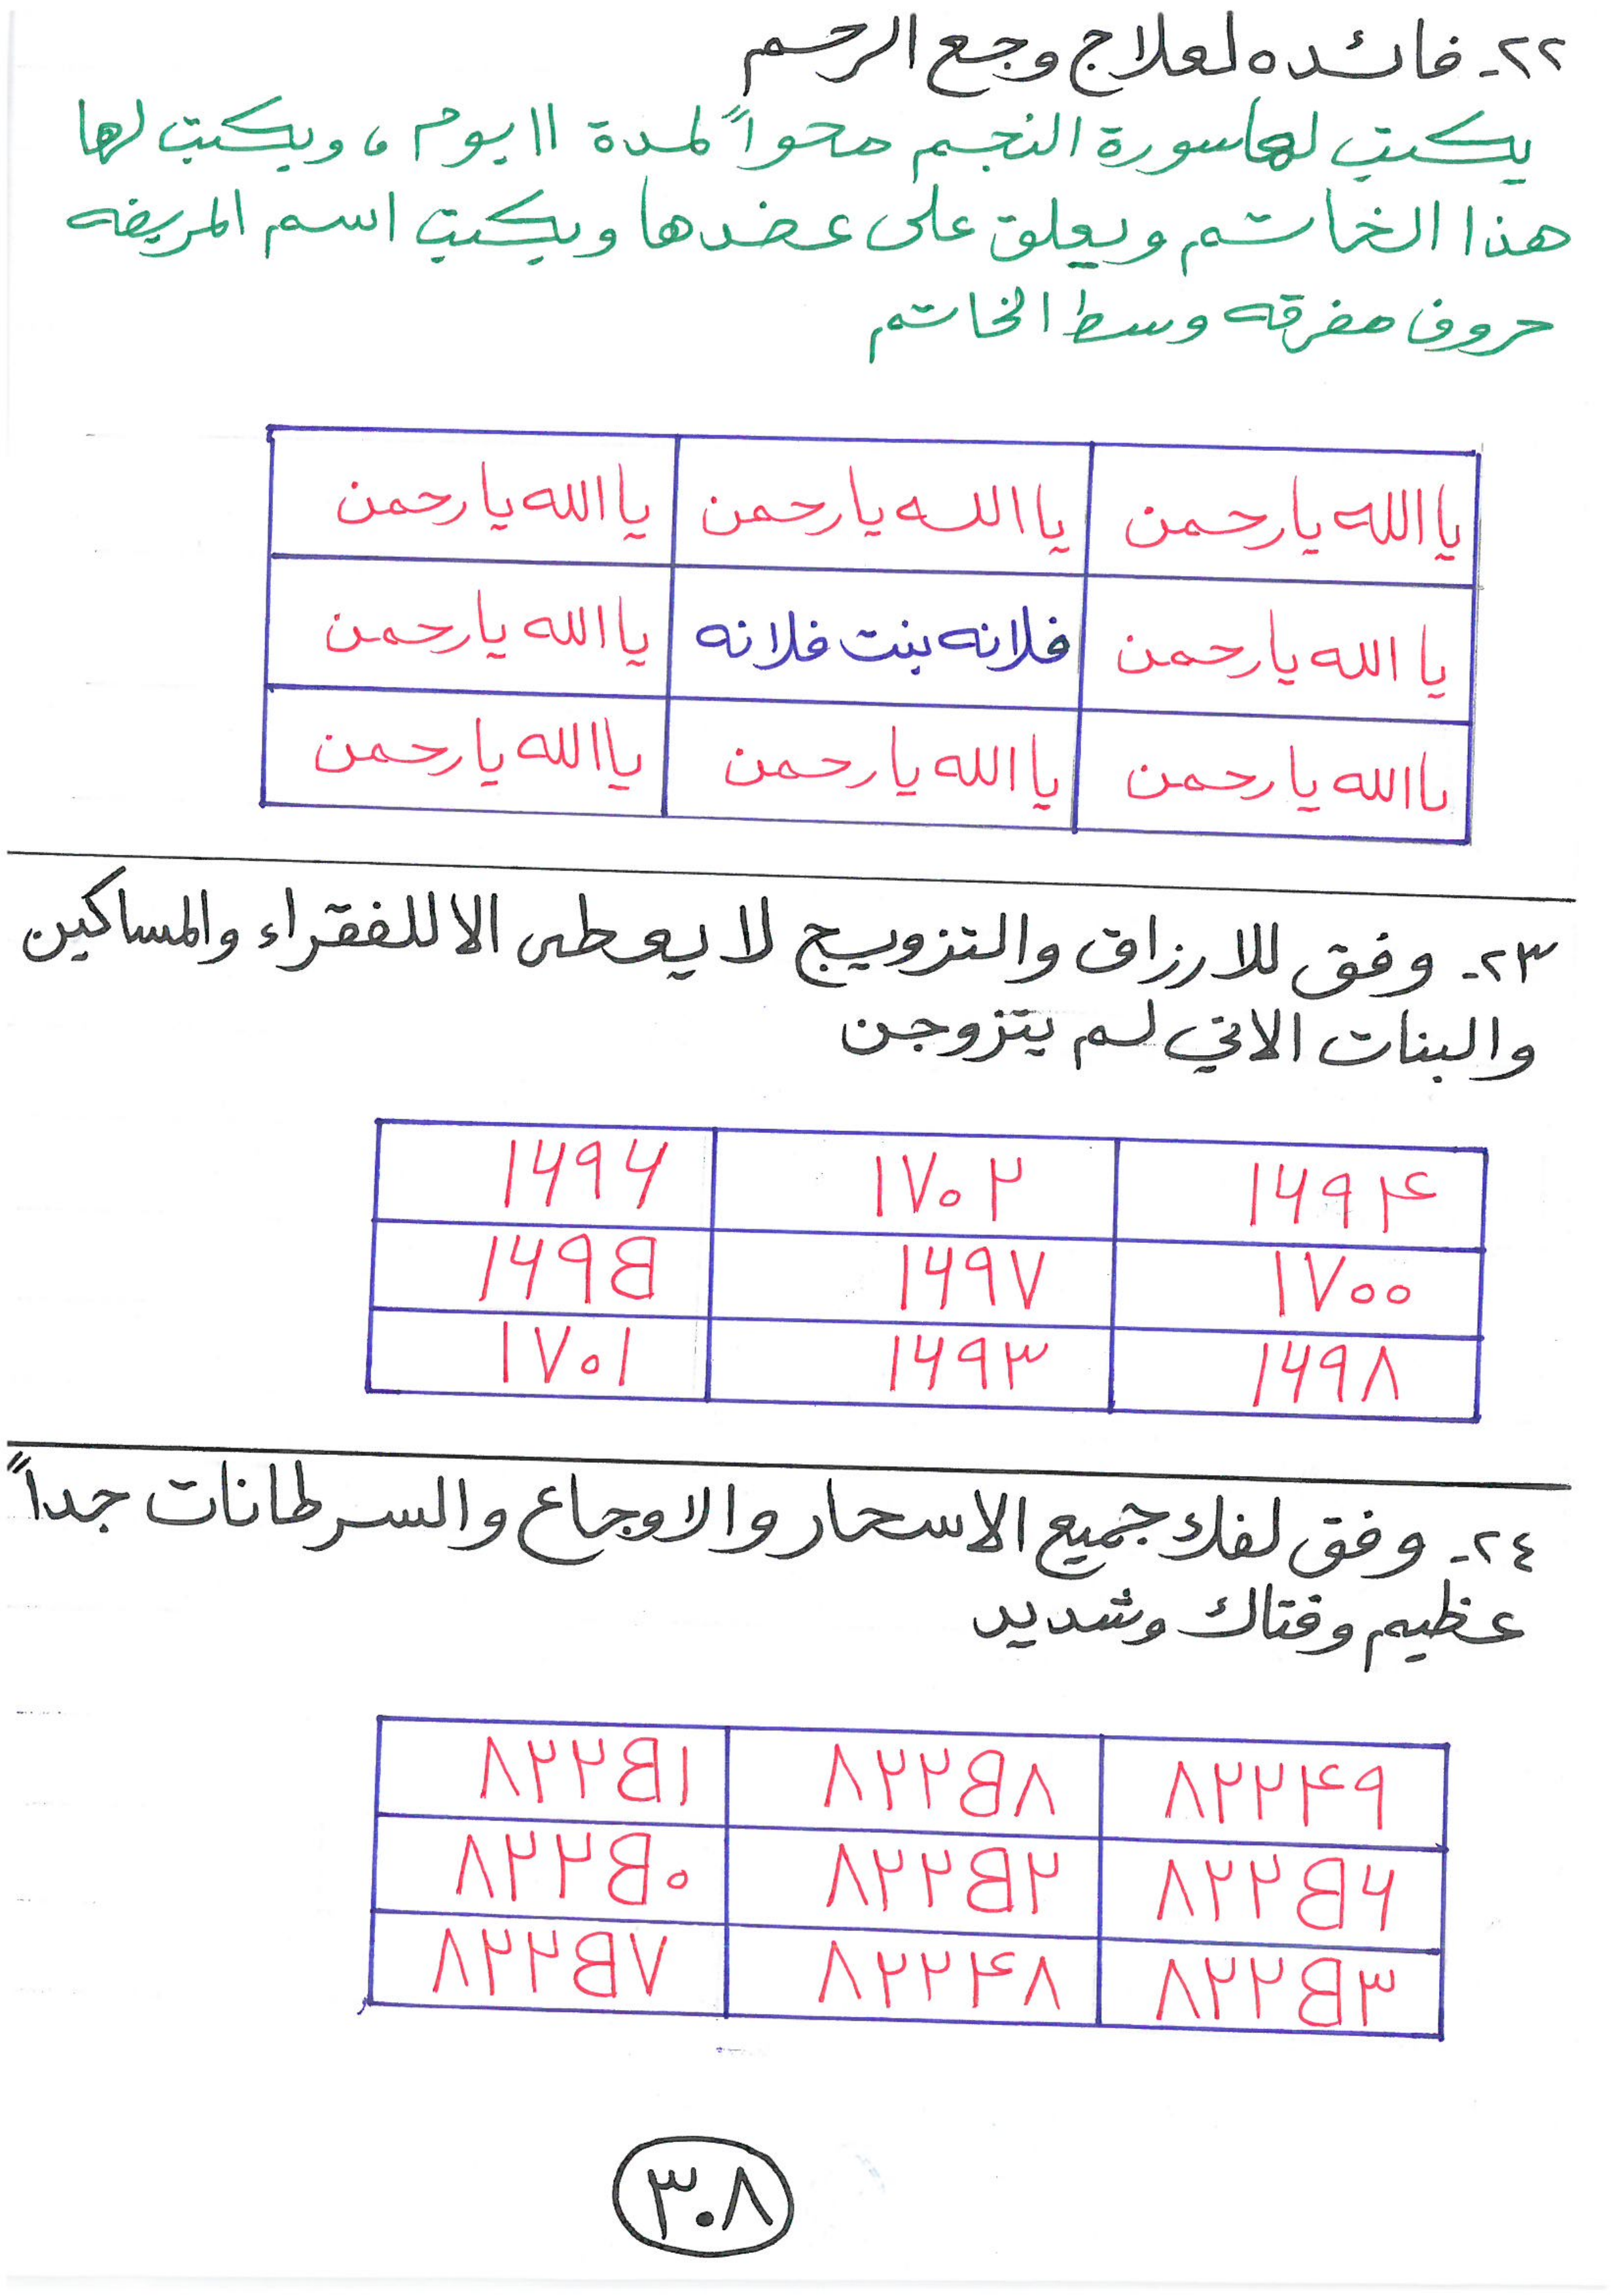 ٢٢- فائده لعلاج وجع الرحم
يكتب لها سورة النجم محواً لمدة ١١ يوم ، ويكتب لها
هذا الخاتم ويعلق على عضدها ويكتب اسم المريضه
حروف مفرقه وسط الخاتم
يا الله يا رحمن يا الله يا رحمن يا الله يا رحمن
يا الله يا رحمن فلانه بنت فلانه يا الله يا رحمن
يا الله يا رحمن يا الله يا رحمن يا الله يا رحمن
٢٣- وفق للارزاق والتزويج لا يعطى الا للفقراء والمساكين
والبنات الاتي لم يتزوجن
١٦٩۴ ١٧٠٢ ١٦٩٦
١٧٠٠ ١٦٩٧ ١٦٩٥
١٦٩٨ ١٦٩٣ ١٧٠١
٢٤- وفق لفك جميع الاسحار والاوجاع والسرطانات جداً
عظيم وفتاك وشديد
٨٢٢۴٩ ٨٢٢٥٨ ٨٢٢٥١
٨٢٢٥٦ ٨٢٢٥٢ ٨٢٢٥٠
٨٢٢٥٣ ٨٢٢۴٨ ٨٢٢٥٧
٣٠٨